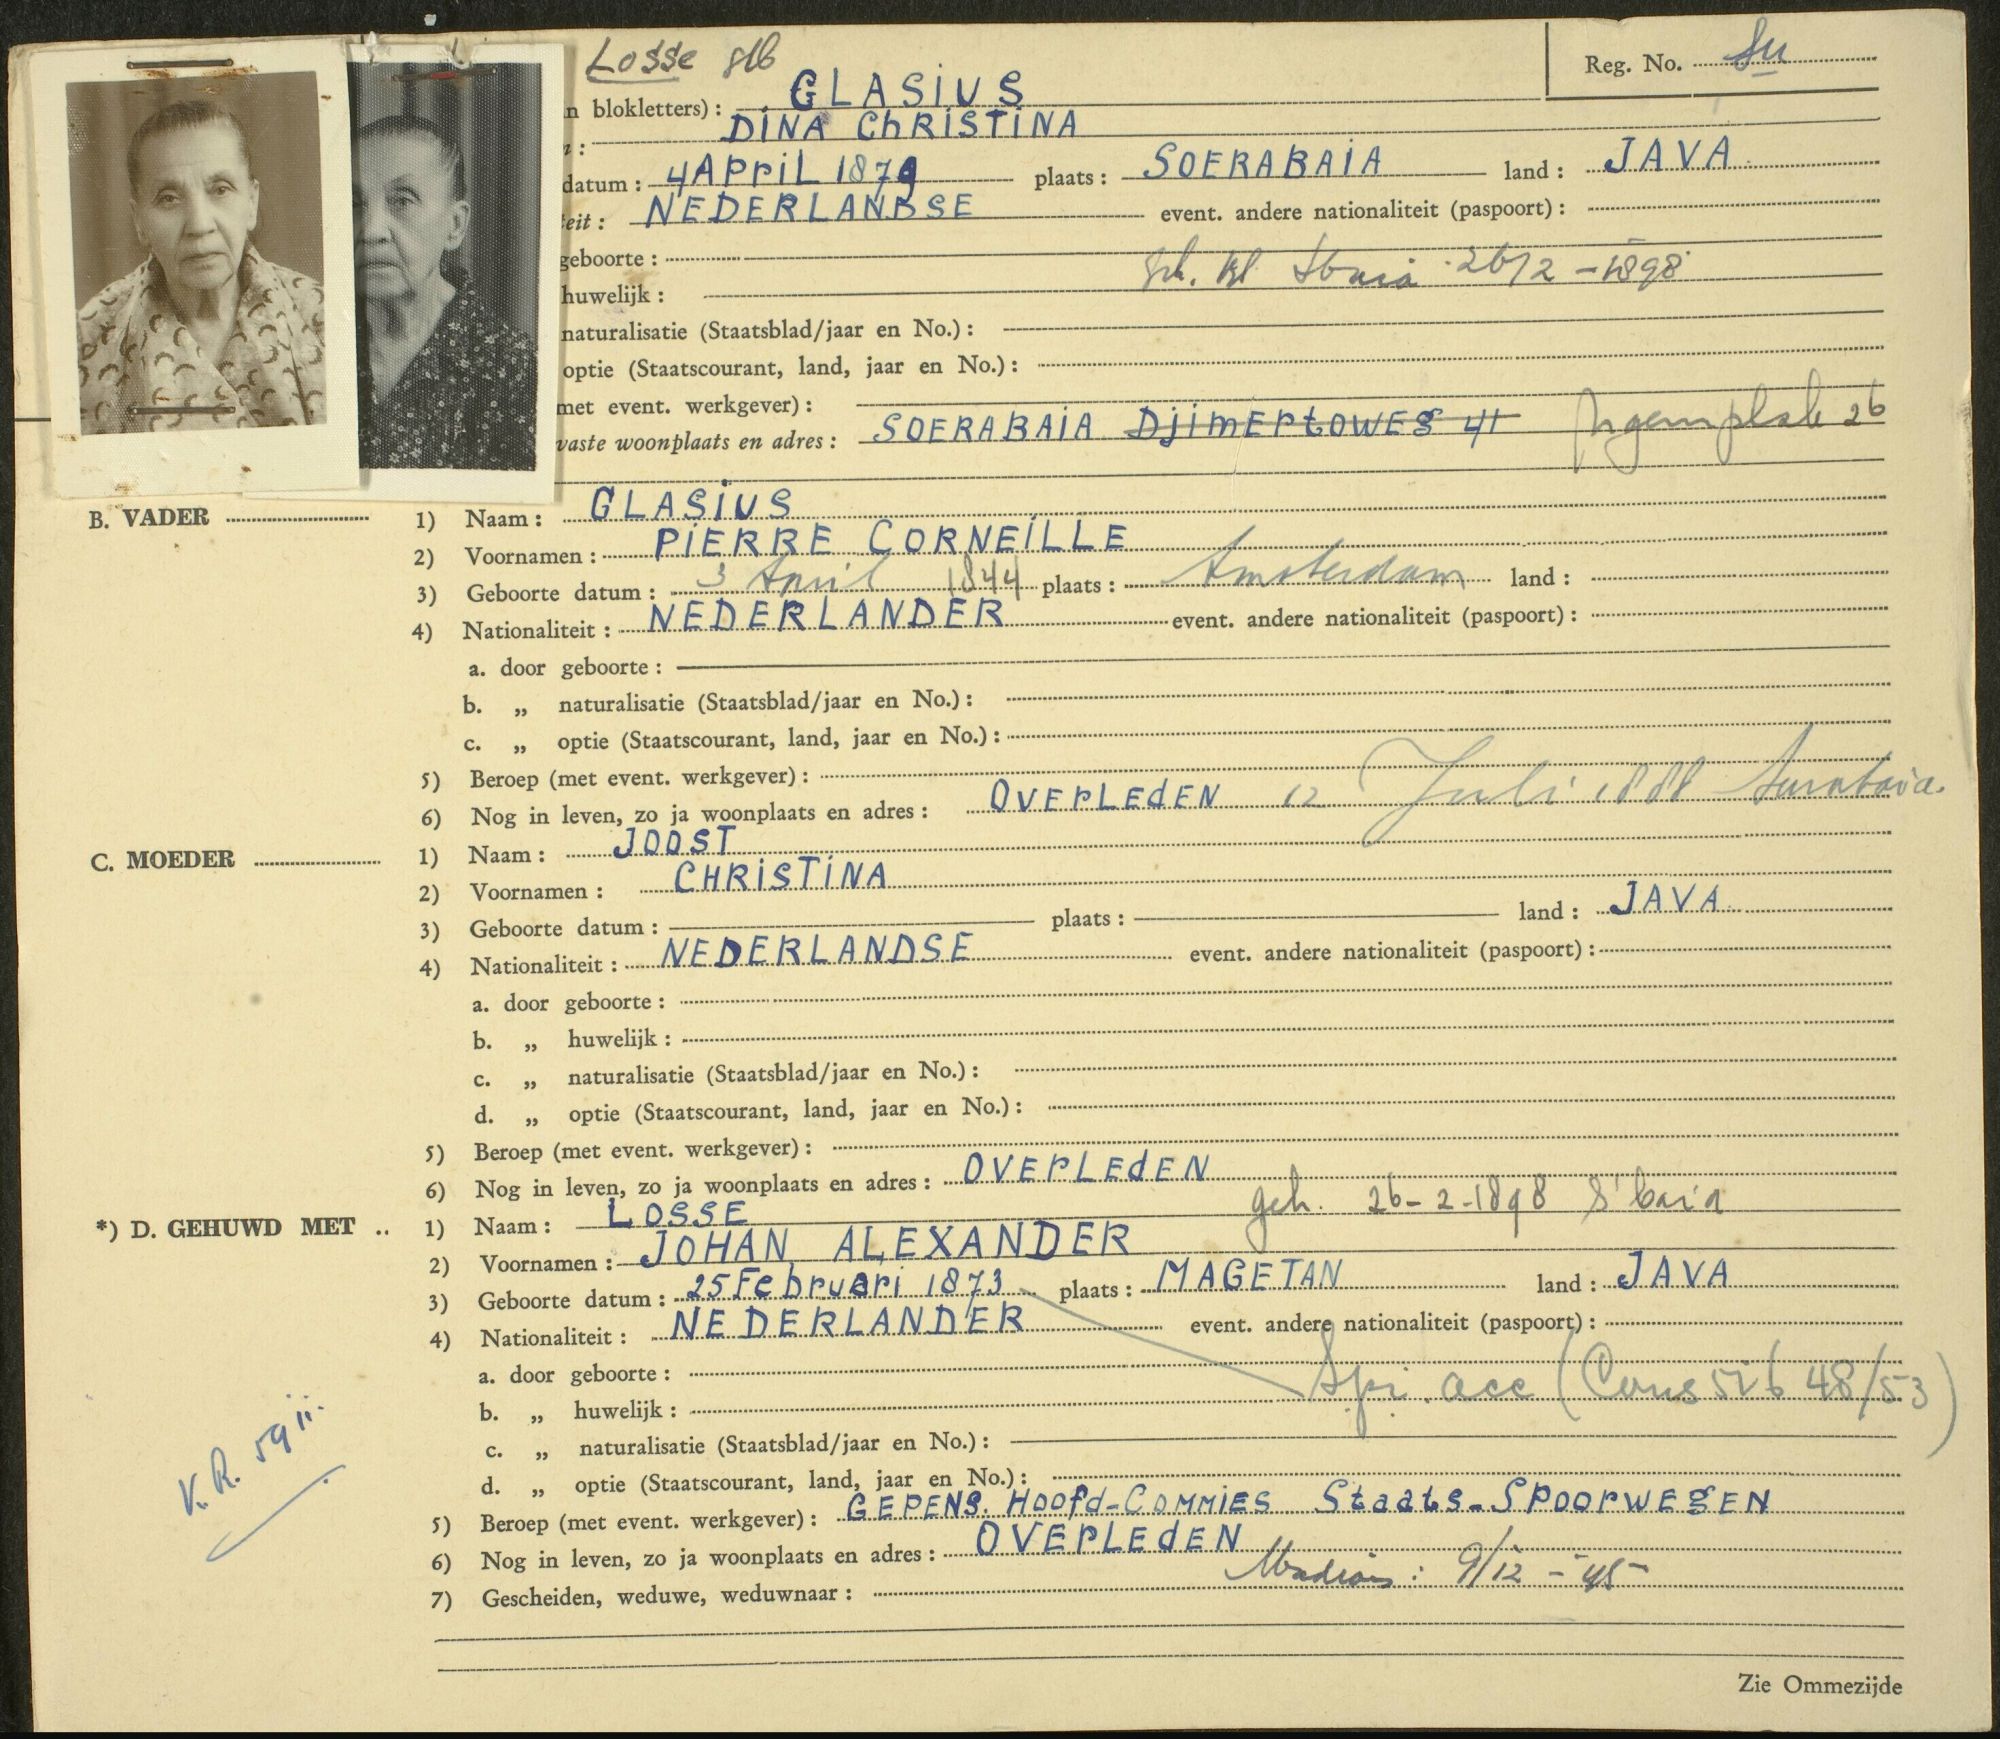 Losse
Reg. No. Su
n blokletters): GLASIUS
DINA ChRISTINA
datum: 4 APRIL 1879 plaats: SOERABAIA land: JAVA
eit: NEDERLANDSE event. andere nationaliteit (paspoort):
geboorte:
huwelijk: 26/2-1898
naturalisatie (Staatsblad/jaar en No.):
optie (Staatscourant, land, jaar en No.):
met event. werkgever):
vaste woonplaats en adres: SOERABAIA DjimERtoWEg 41 26
B. VADER 1) Naam: GLASIUS
2) Voornamen: PIERRE CORNEILLE
3) Geboorte datum: 3 April 1844 plaats: Amsterdam land:
4) Nationaliteit: NEDERLANDER event. andere nationaliteit (paspoort):
a. door geboorte:
b. „ naturalisatie (Staatsblad/jaar en No.):
c. „ optie (Staatscourant, land, jaar en No.):
5) Beroep (met event. werkgever):
6) Nog in leven, zo ja woonplaats en adres: OVERLEdEN 12 Juli 1888 Surabaia.
C. MOEDER 1) Naam: JOOST
2) Voornamen: CHRISTINA
3) Geboorte datum: plaats: land: JAVA
4) Nationaliteit: NEDERLANDSE event. andere nationaliteit (paspoort):
a. door geboorte:
b. „ huwelijk:
c. „ naturalisatie (Staatsblad/jaar en No.):
d. „ optie (Staatscourant, land, jaar en No.):
5) Beroep (met event. werkgever):
6) Nog in leven, zo ja woonplaats en adres: OVERLEdEN
geh. 26-2-1898 S'baia
*) D. GEHUWD MET .. 1) Naam: LOSSE
2) Voornamen: JOHAN ALEXANDER
3) Geboorte datum: 25 Februari 1873 plaats: MAGETAN land: JAVA
4) Nationaliteit: NEDERLANDER event. andere nationaliteit (paspoort):
a. door geboorte:
Spi. acc (Cons 48/53)
b. „ huwelijk:
c. „ naturalisatie (Staatsblad/jaar en No.):
d. „ optie (Staatscourant, land, jaar en No.):
V.R. 59 ii.
5) Beroep (met event. werkgever): GEPENS. Hoofd-COMMIES Staats-SPOORWEgEN
6) Nog in leven, zo ja woonplaats en adres: OVERLEdEN
Madioen: 9/12-45
7) Gescheiden, weduwe, weduwnaar:
Zie Ommezijde